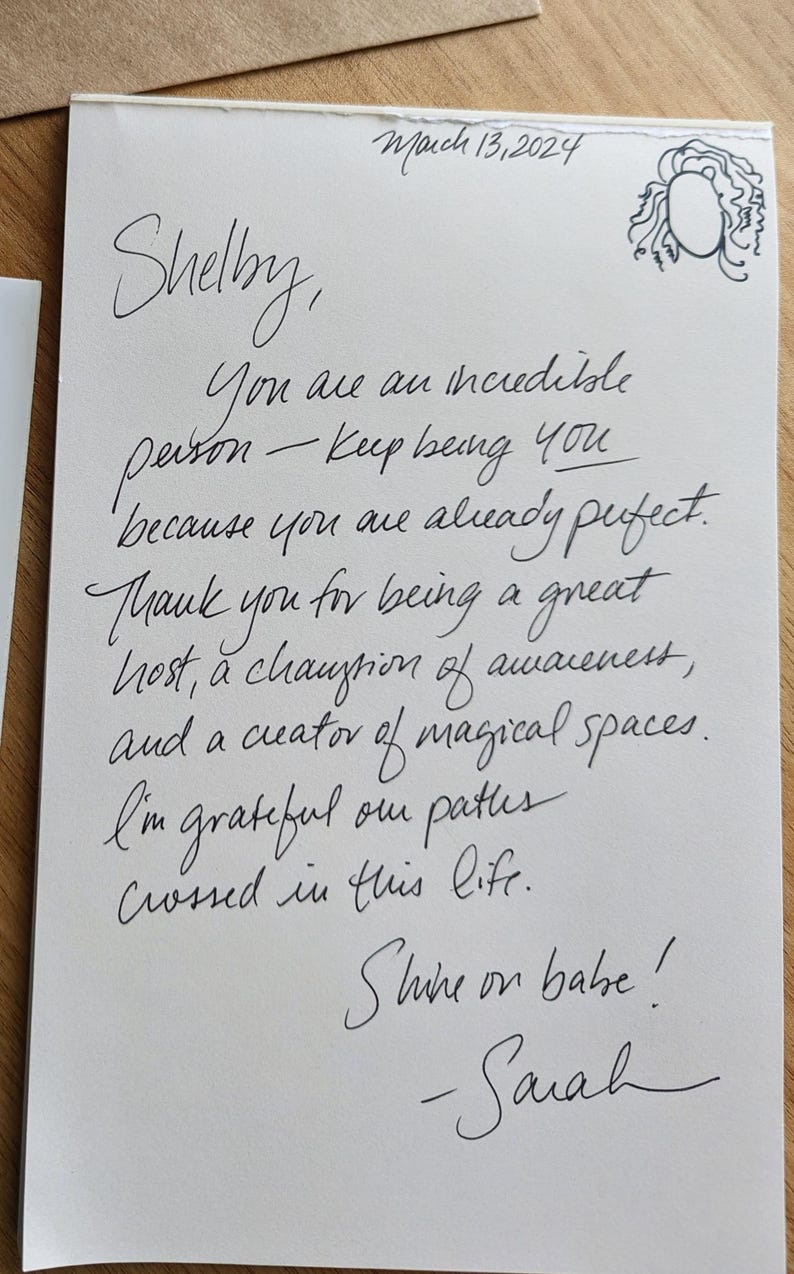 March 13, 2024
Shelby,
You are an incredible
person — Keep being you
because you are already perfect.
Thank you for being a great
host, a champion of awareness,
and a creator of magical spaces.
I'm grateful our paths
crossed in this life.
Shine on babe!
- Sarah